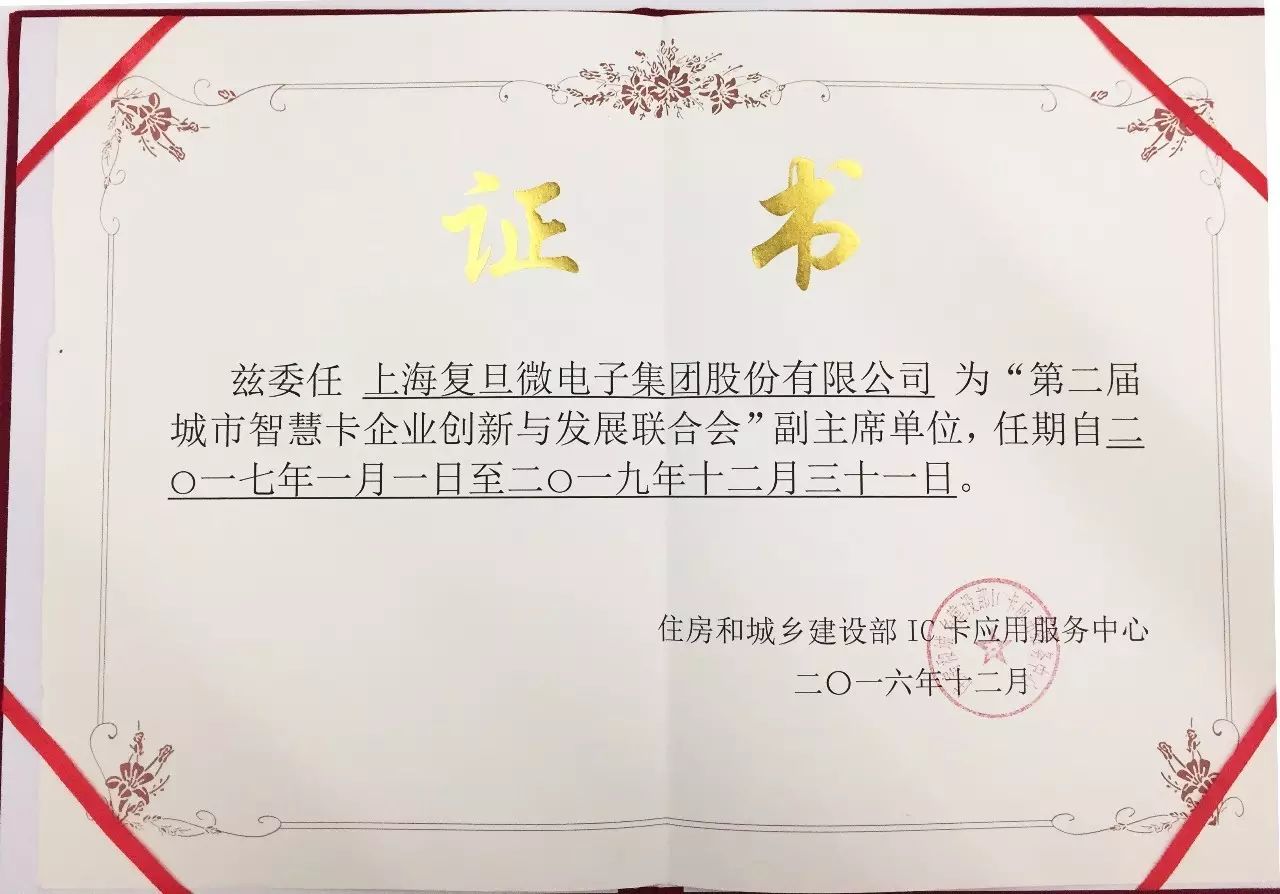 证 书
兹委任 上海复旦微电子集团股份有限公司 为“第二届
城市智慧卡企业创新与发展联合会”副主席单位，任期自二
〇一七年一月一日至二〇一九年十二月三十一日。
住房和城乡建设部 IC 卡应用服务中心
二〇一六年十二月
住房和城乡建设部IC卡应用服务中心